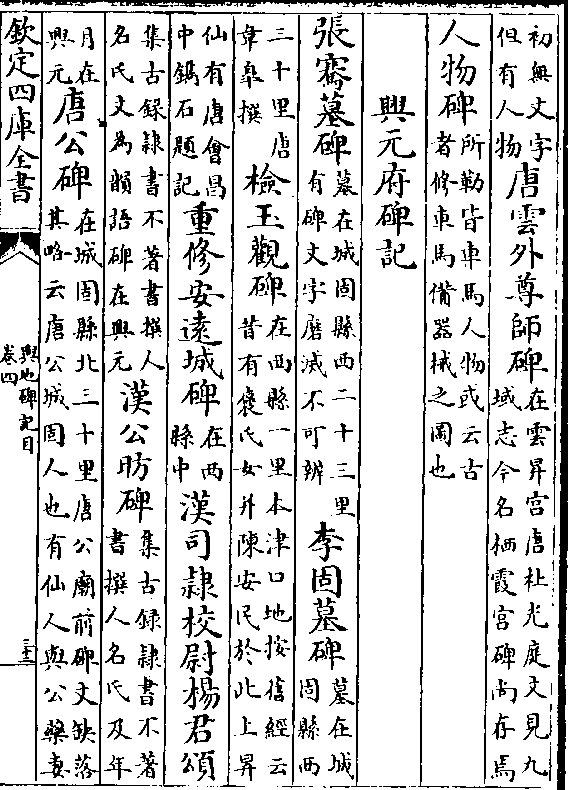 初無文字但有人物唐雲外尊師碑在雲昇宫唐杜光庭文見九域志今名栖霞宫碑尚存焉
人物碑所勒皆車馬人物或云古者修車馬備器械之圖也
興元府碑記
張騫墓碑墓在城固縣西二十三里有碑文字磨滅不可辨李固墓碑墓在城固縣西
三十里唐韋臯撰檢玉觀碑在西縣一里本津口地按舊經云昔有褒氏女并陳安民於此上昇
仙有唐會昌中鐫石題記重修安遠城碑在西縣中漢司隸校尉楊君頌
集古録隸書不著書撰人名氏文為韻語碑在興元漢公昉碑集古録隸書不著書撰人名氏及年
月在興元唐公碑在城固縣北三十里唐公廟前碑文缺落其略云唐公城固人也有仙人與公藥妻
欽定四庫全書
輿地碑記目
卷四
三十三